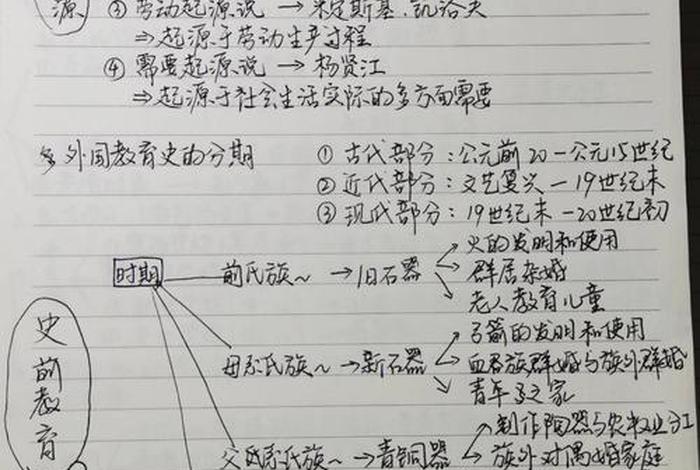 源 ③ 劳动起源说 → 米定斯基、凯洛夫
⇒ 起源于劳动生产过程
④ 需要起源说 → 杨贤江
⇒ 起源于社会生活实际的多方面需要
外国教育史的分期 ① 古代部分：公元前20-公元15世纪
② 近代部分：文艺复兴-19世纪末
③ 现代部分：19世纪末-20世纪初
火的发明和使用
时期 前氏族~ → 旧石器 群居杂婚
老人教育儿童
弓箭的发明和使用
母系氏族~ → 新石器 血缘族群婚与族外群婚
青年之家
制作陶器与农牧业分工
父氏系氏族~ → 青铜器 族外对偶婚家庭
史前教育